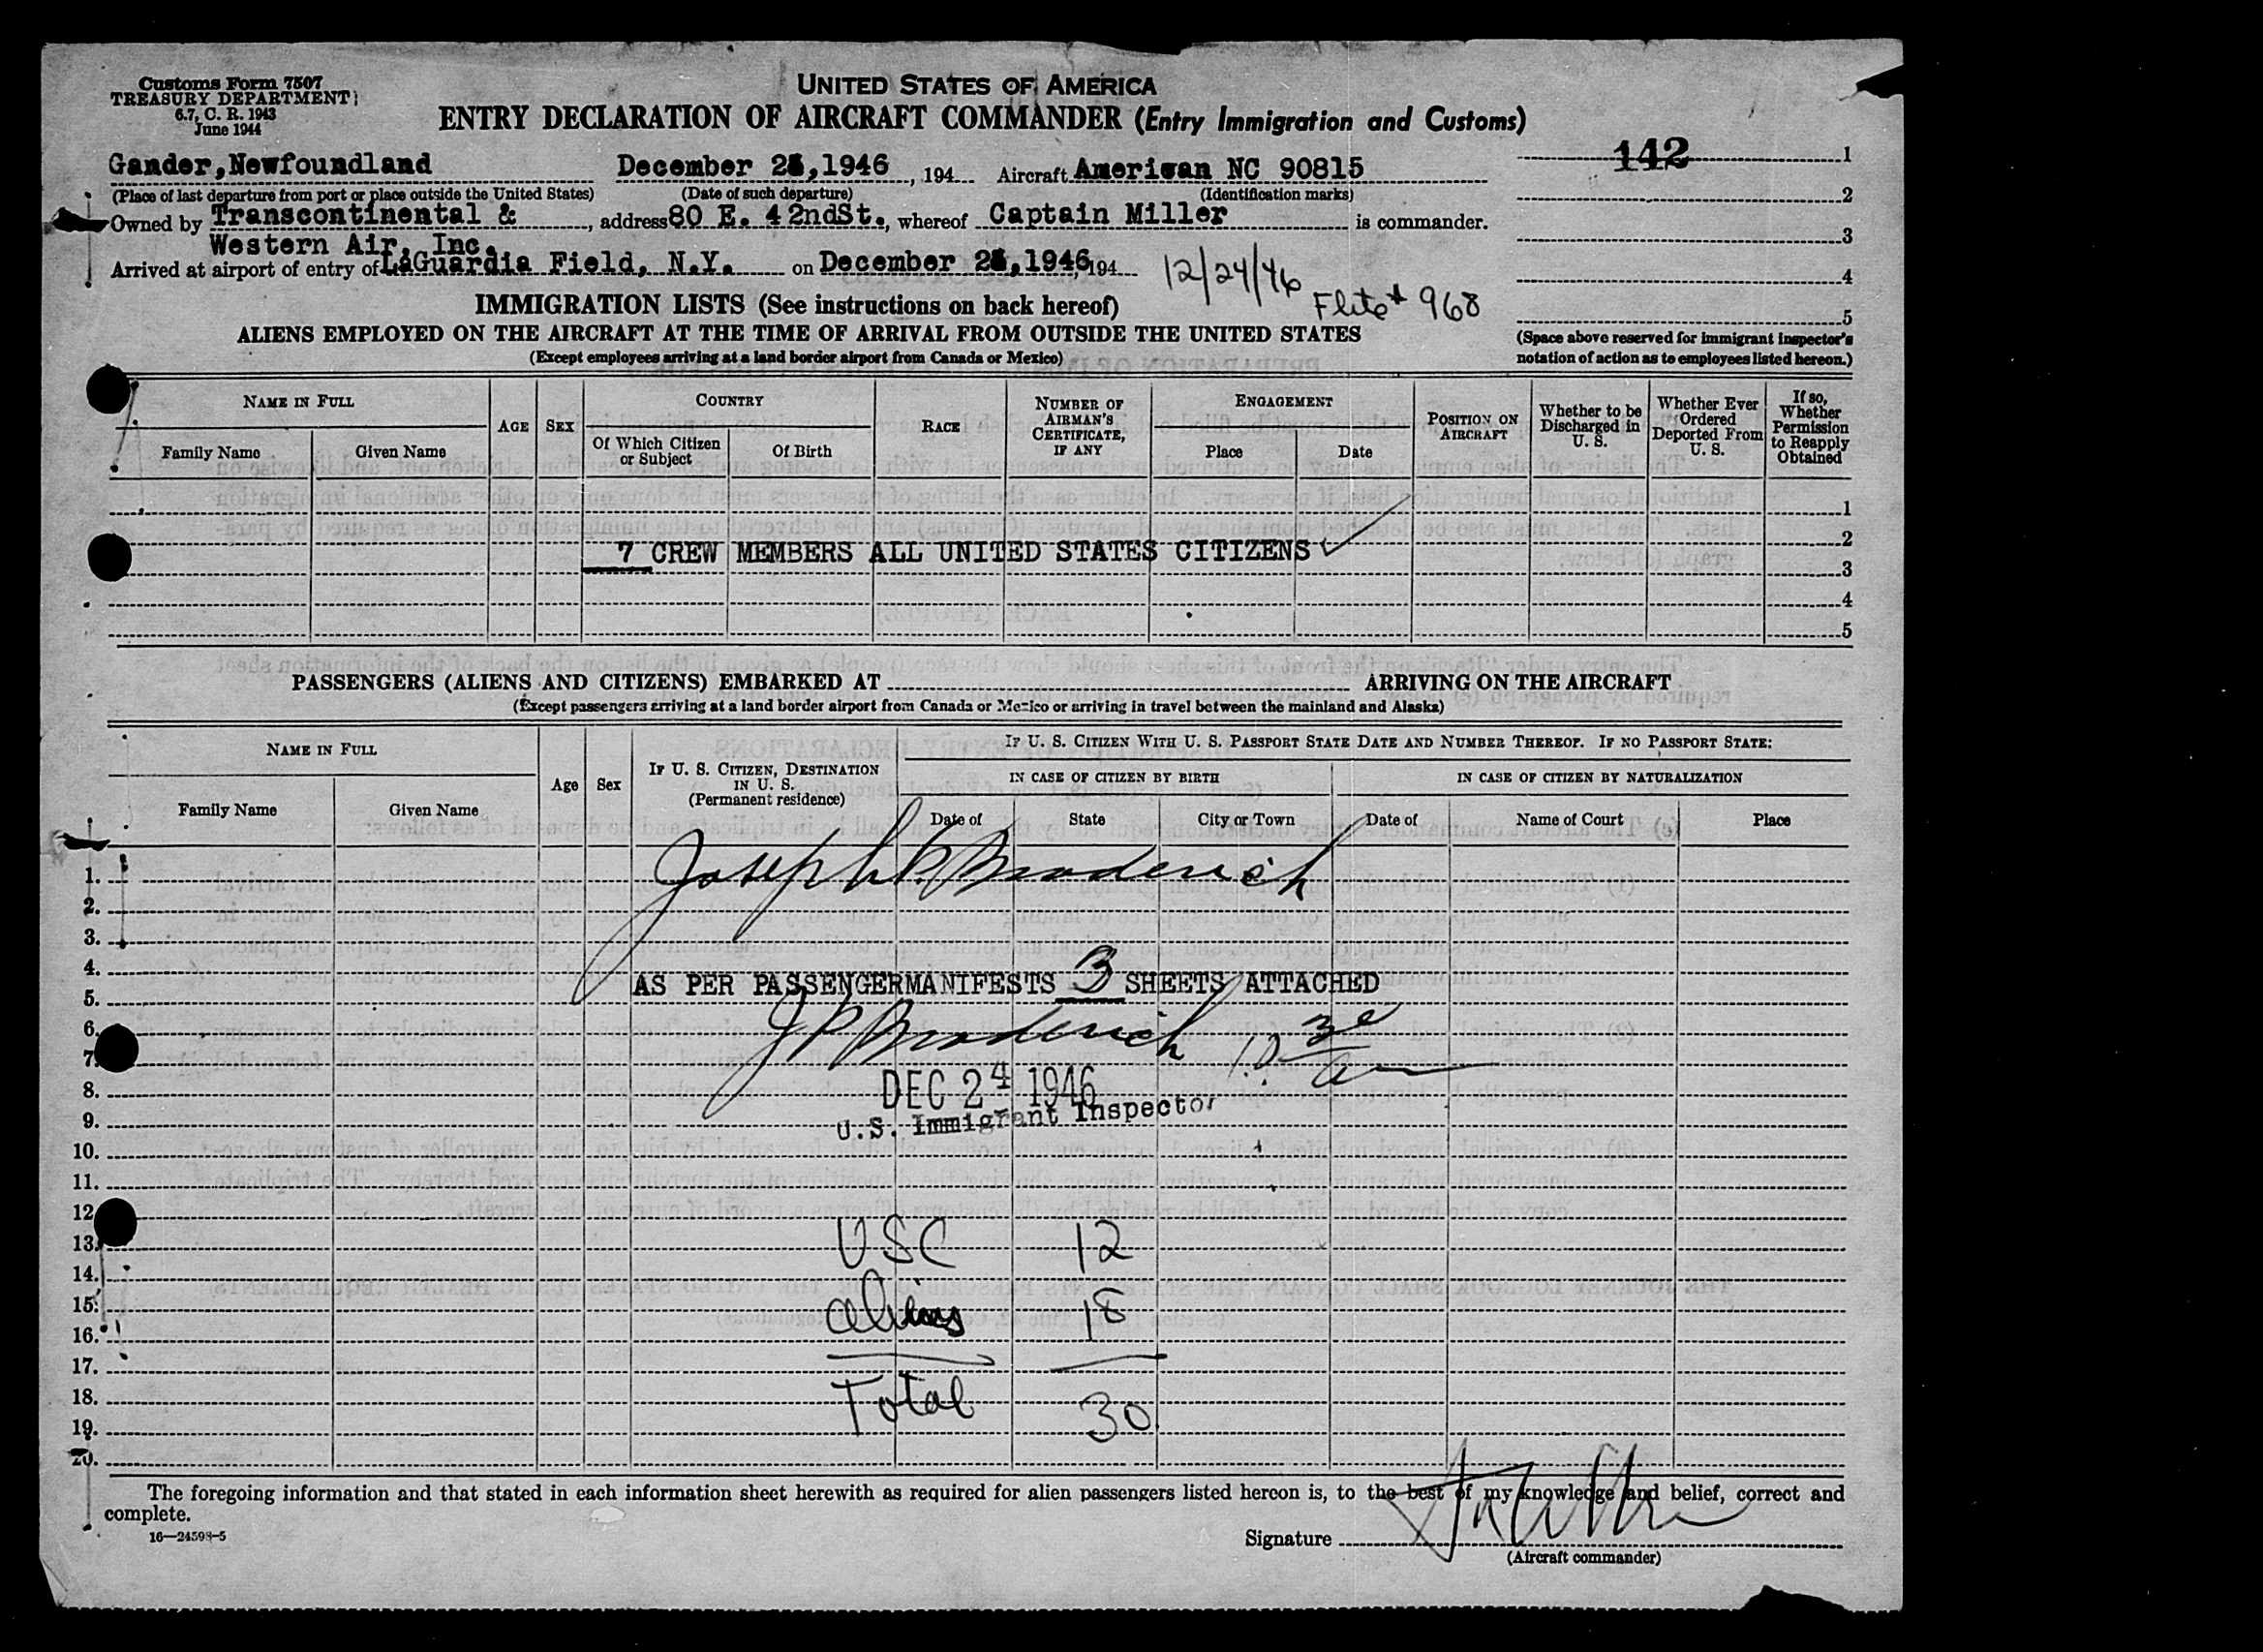 Customs Form 7507
TREASURY DEPARTMENT
6.7, C. R. 1943
June 1944
UNITED STATES OF AMERICA
ENTRY DECLARATION OF AIRCRAFT COMMANDER (Entry Immigration and Customs)
142 1
Gander,Newfoundland December 2 ,1946 , 194 Aircraft American NC 90815
(Place of last departure from port or place outside the United States) (Date of such departure) (Identification marks)
2
Owned by Transcontinental & , address 80 E. 42ndSt., whereof Captain Miller is commander.
Western Air, Inc.
3
Arrived at airport of entry of LaGuardia Field, N.Y. on December 2 ,1946, 194
12/24/46
4
Flite # 968
5
IMMIGRATION LISTS (See instructions on back hereof)
ALIENS EMPLOYED ON THE AIRCRAFT AT THE TIME OF ARRIVAL FROM OUTSIDE THE UNITED STATES
(Except employees arriving at a land border airport from Canada or Mexico)
(Space above reserved for immigrant inspector's
notation of action as to employees listed hereon.)
NAME IN FULL
Family Name
Given Name
AGE
SEX
COUNTRY
Of Which Citizen
or Subject
Of Birth
RACE
NUMBER OF
AIRMAN'S
CERTIFICATE,
IF ANY
ENGAGEMENT
Place
Date
POSITION ON
AIRCRAFT
Whether to be
Discharged in
U. S.
Whether Ever
Ordered
Deported From
U. S.
If so,
Whether
Permission
to Reapply
Obtained
1
2
7 CREW MEMBERS ALL UNITED STATES CITIZENS
3
4
5
PASSENGERS (ALIENS AND CITIZENS) EMBARKED AT ARRIVING ON THE AIRCRAFT
(Except passengers arriving at a land border airport from Canada or Mexico or arriving in travel between the mainland and Alaska)
NAME IN FULL
Family Name
Given Name
Age
Sex
IF U. S. CITIZEN, DESTINATION
IN U. S.
(Permanent residence)
IF U. S. CITIZEN WITH U. S. PASSPORT STATE DATE AND NUMBER THEREOF. IF NO PASSPORT STATE:
IN CASE OF CITIZEN BY BIRTH
Date of
State
City or Town
IN CASE OF CITIZEN BY NATURALIZATION
Date of
Name of Court
Place
Joseph P. Broderich
1.
2.
3.
4.
AS PER PASSENGERMANIFESTS 3 SHEETS ATTACHED
5.
6.
J P Broderich
7.
8.
DEC 24 1946
U.S. Immigrant Inspector
9.
10.
11.
12
13.
USC 12
14.
15.
aliens 18
16.
17.
18.
Total 30
19.
20.
The foregoing information and that stated in each information sheet herewith as required for alien passengers listed hereon is, to the best of my knowledge and belief, correct and
complete.
16—24598-5
Signature
(Aircraft commander)